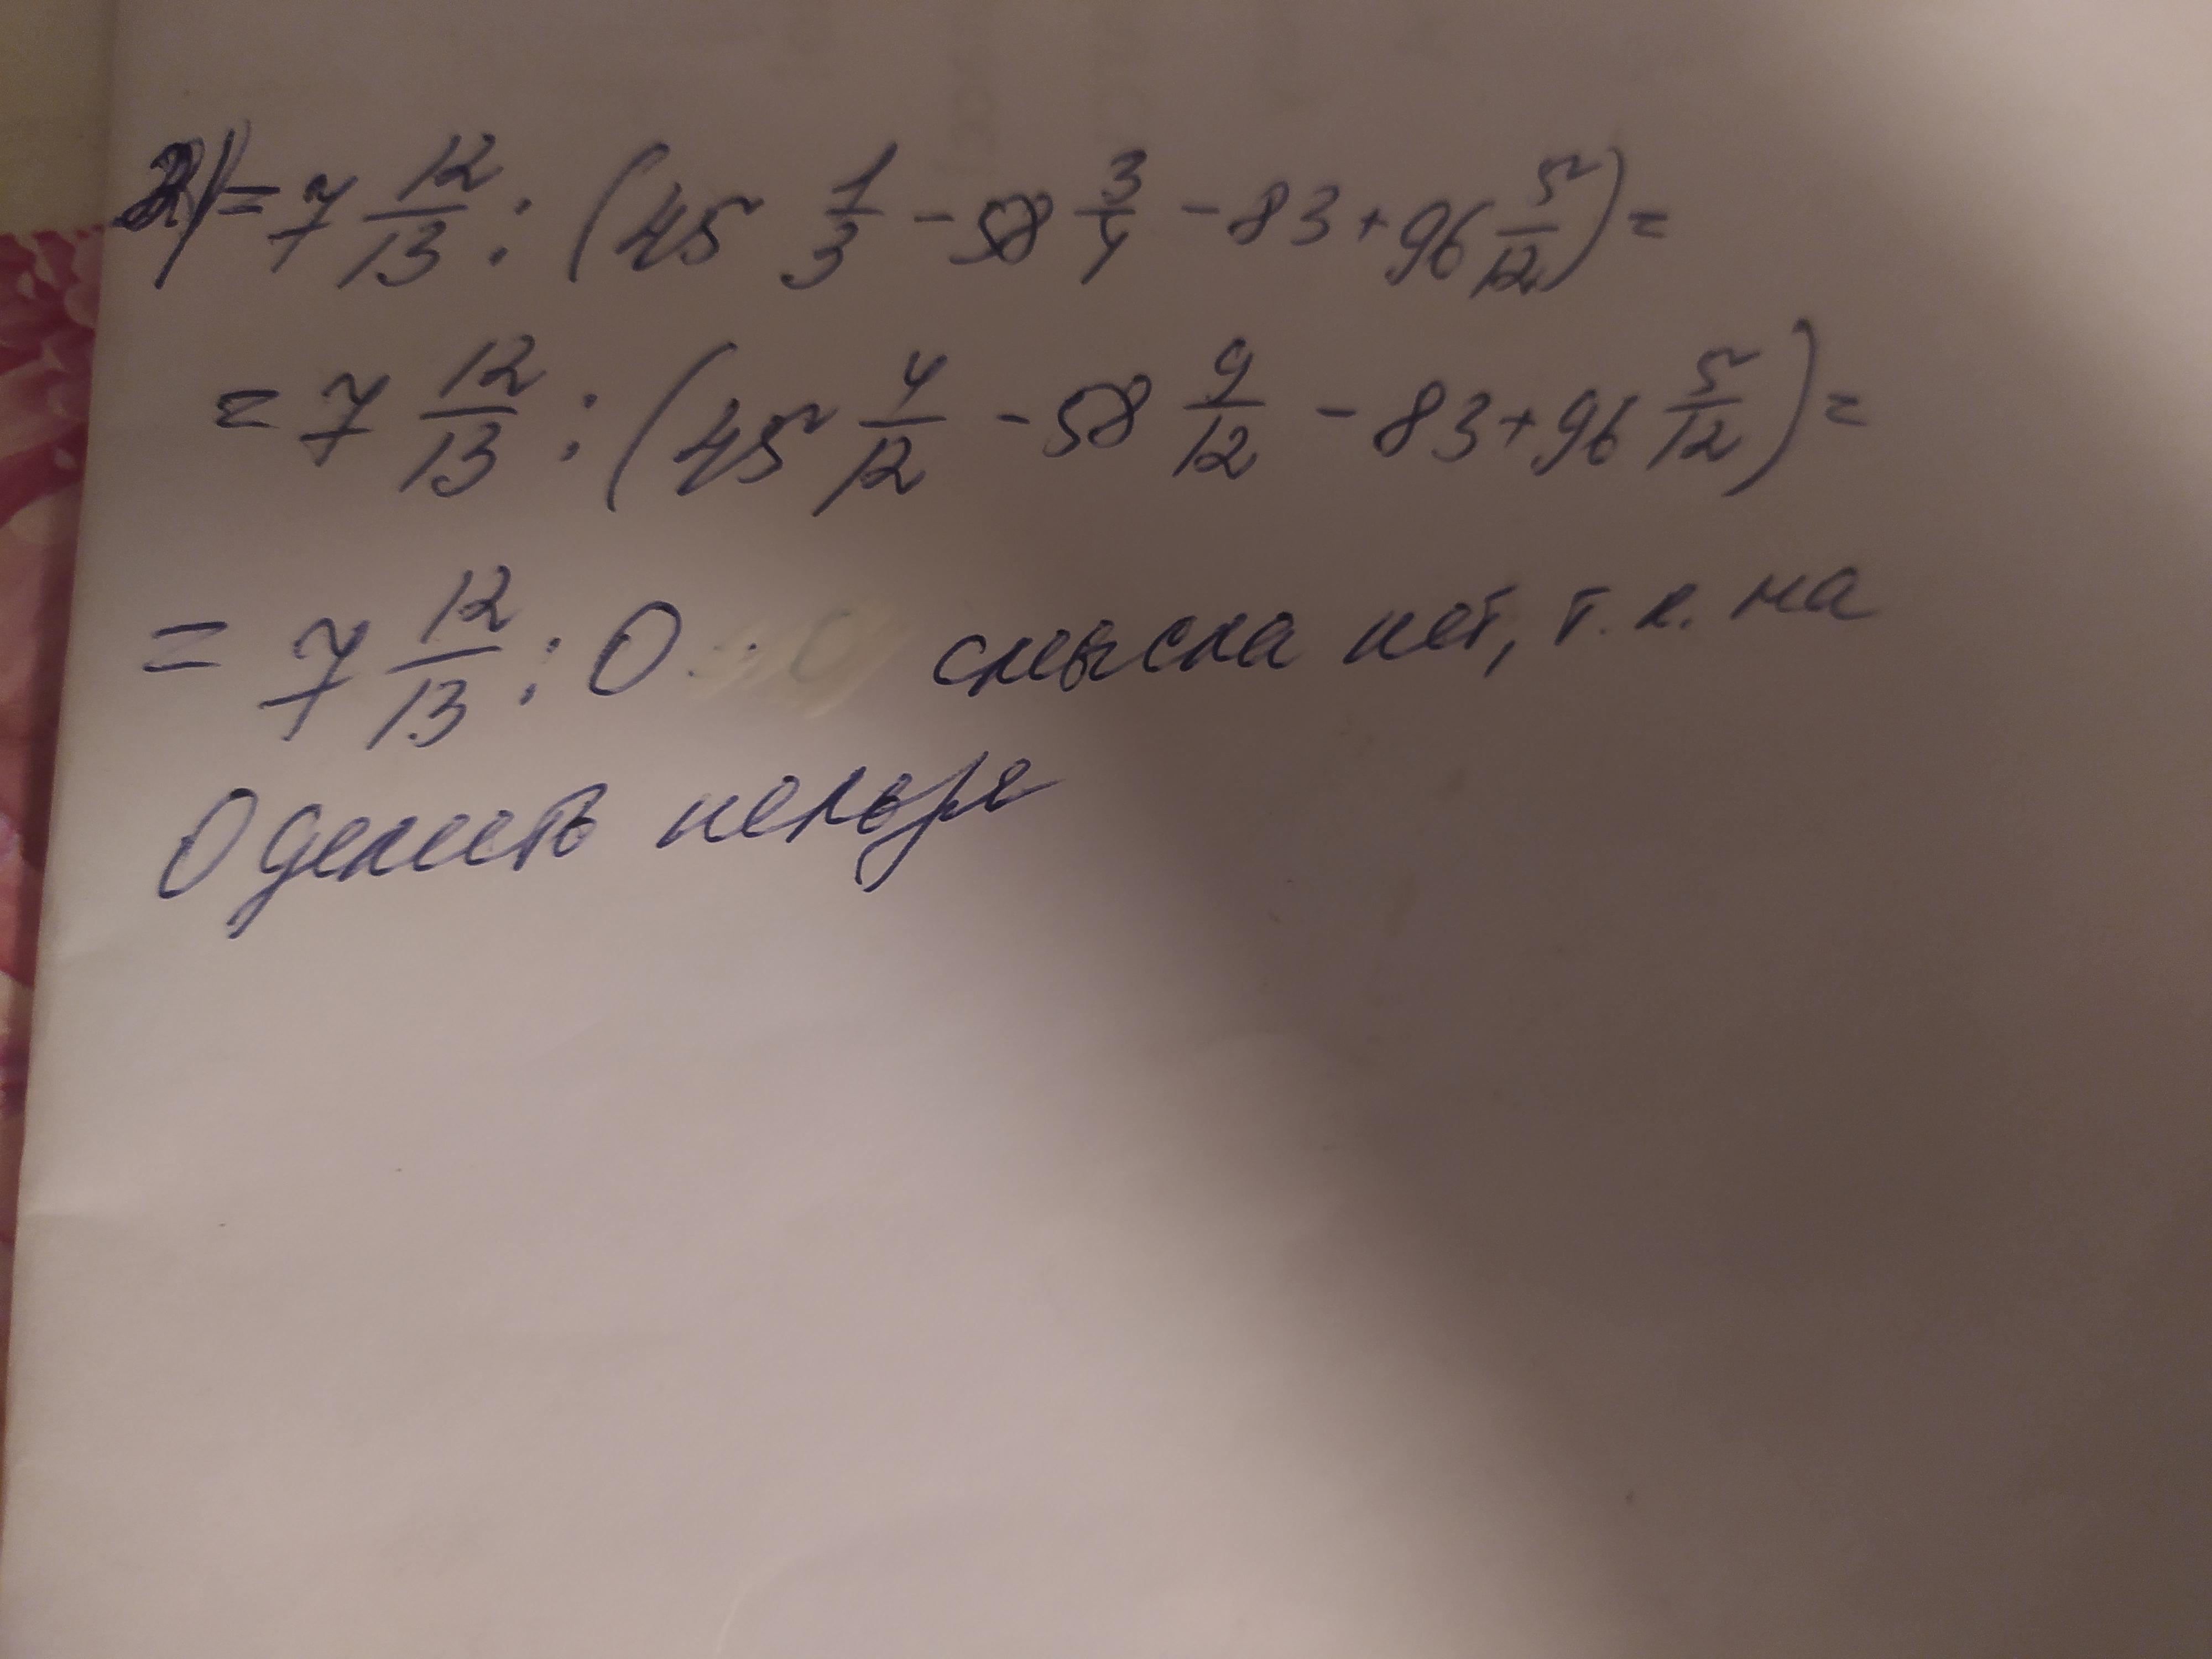 2) = 7 12/13 : (45 1/3 - 58 3/4 - 83 + 96 5/12) =
= 7 12/13 : (45 4/12 - 58 9/12 - 83 + 96 5/12) =
= 7 12/13 : 0 смысла нет, т.к. на
0 делить нельзя